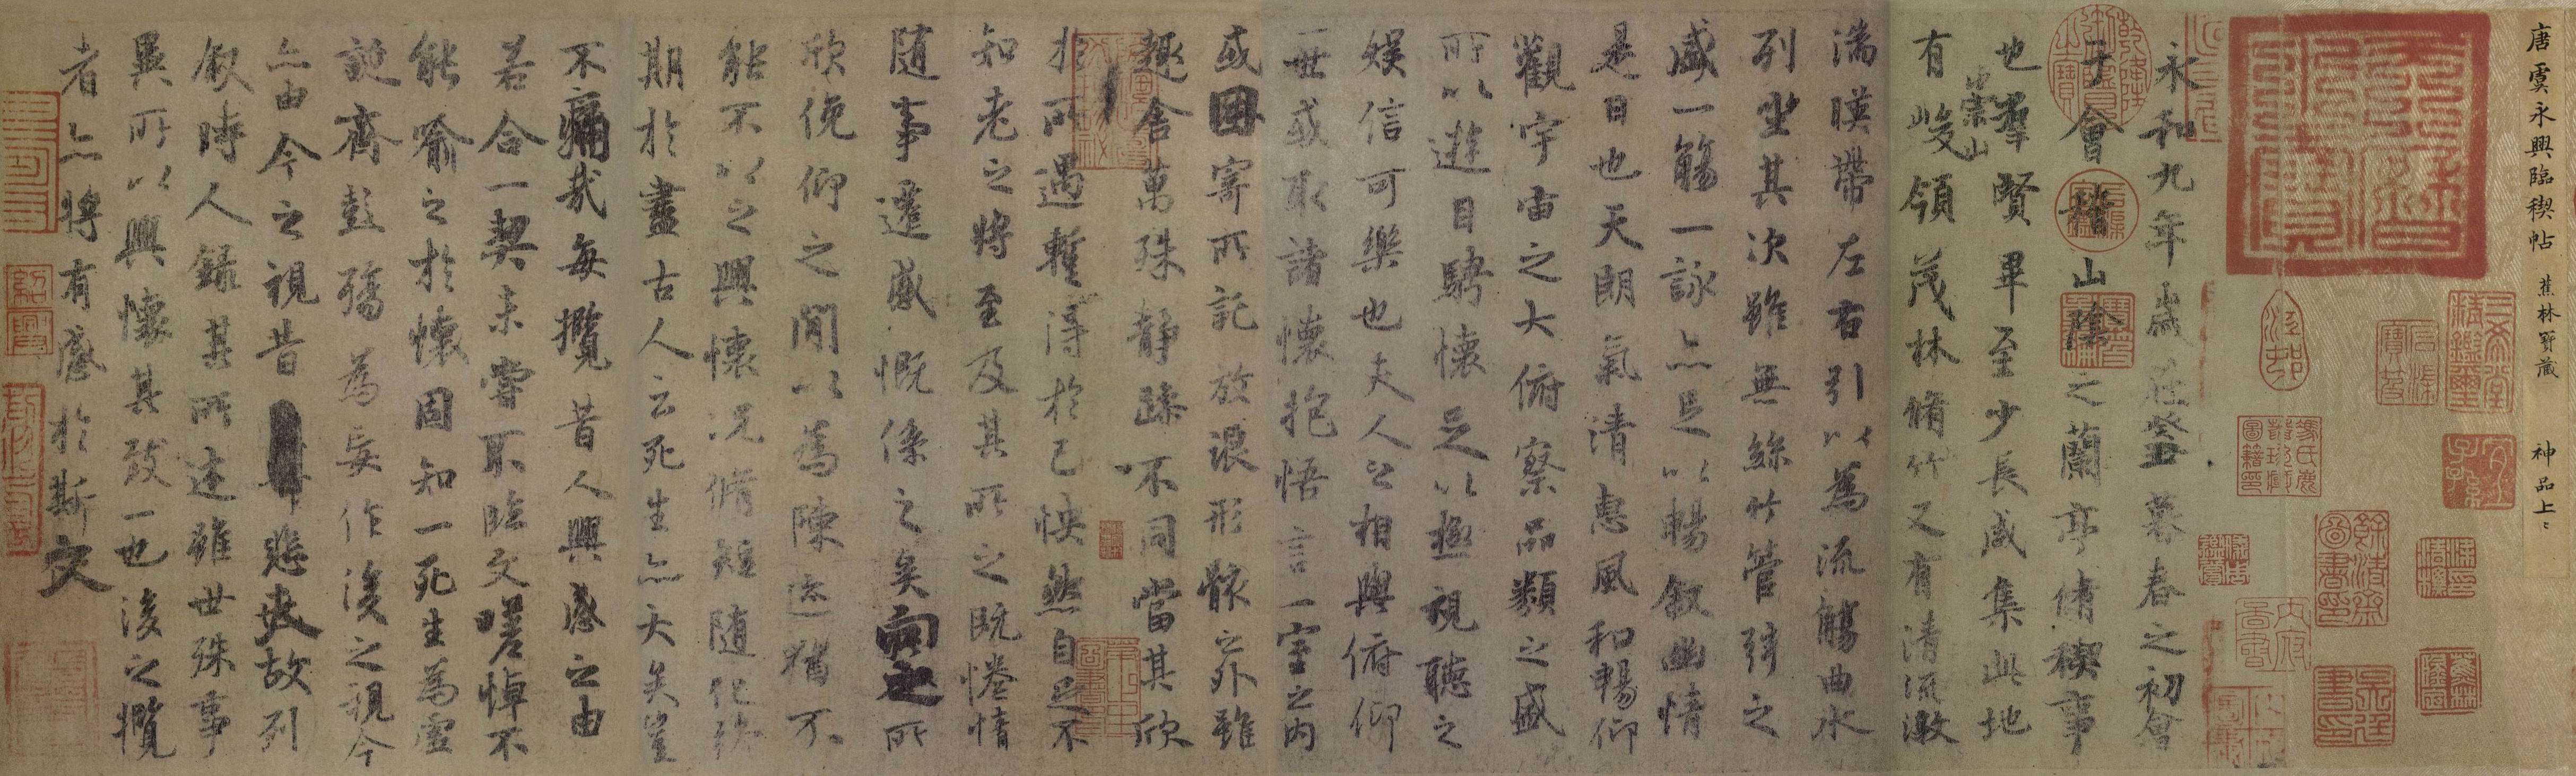 唐虞永興臨稧帖 蕉林寶藏 神品上上
永和九年歲在癸丑暮春之初會
于會稽山陰之蘭亭脩稧事
也羣賢畢至少長咸集此地
有崇山峻領茂林脩竹又有清流激
湍暎帶左右引以為流觴曲水
列坐其次雖無絲竹管弦之
盛一觴一詠亦足以暢敘幽情
是日也天朗氣清惠風和暢仰
觀宇宙之大俯察品類之盛
所以遊目騁懷足以極視聽之
娛信可樂也夫人之相與俯仰
一世或取諸懷抱悟言一室之內
或因寄所託放浪形骸之外雖
趣舍萬殊靜躁不同當其欣
於所遇暫得於己怏然自足不
知老之將至及其所之既惓情
隨事遷感慨係之矣向之所
欣俛仰之閒以為陳迹猶不
能不以之興懷況脩短隨化終
期於盡古人云死生亦大矣豈
不痛哉每攬昔人興感之由
若合一契未嘗不臨文嗟悼不
能喻之於懷固知一死生為虛
誕齊彭殤為妄作後之視今
亦由今之視昔悲夫故列
敘時人錄其所述雖世殊事
異所以興懷其致一也後之攬
者亦將有感於斯文